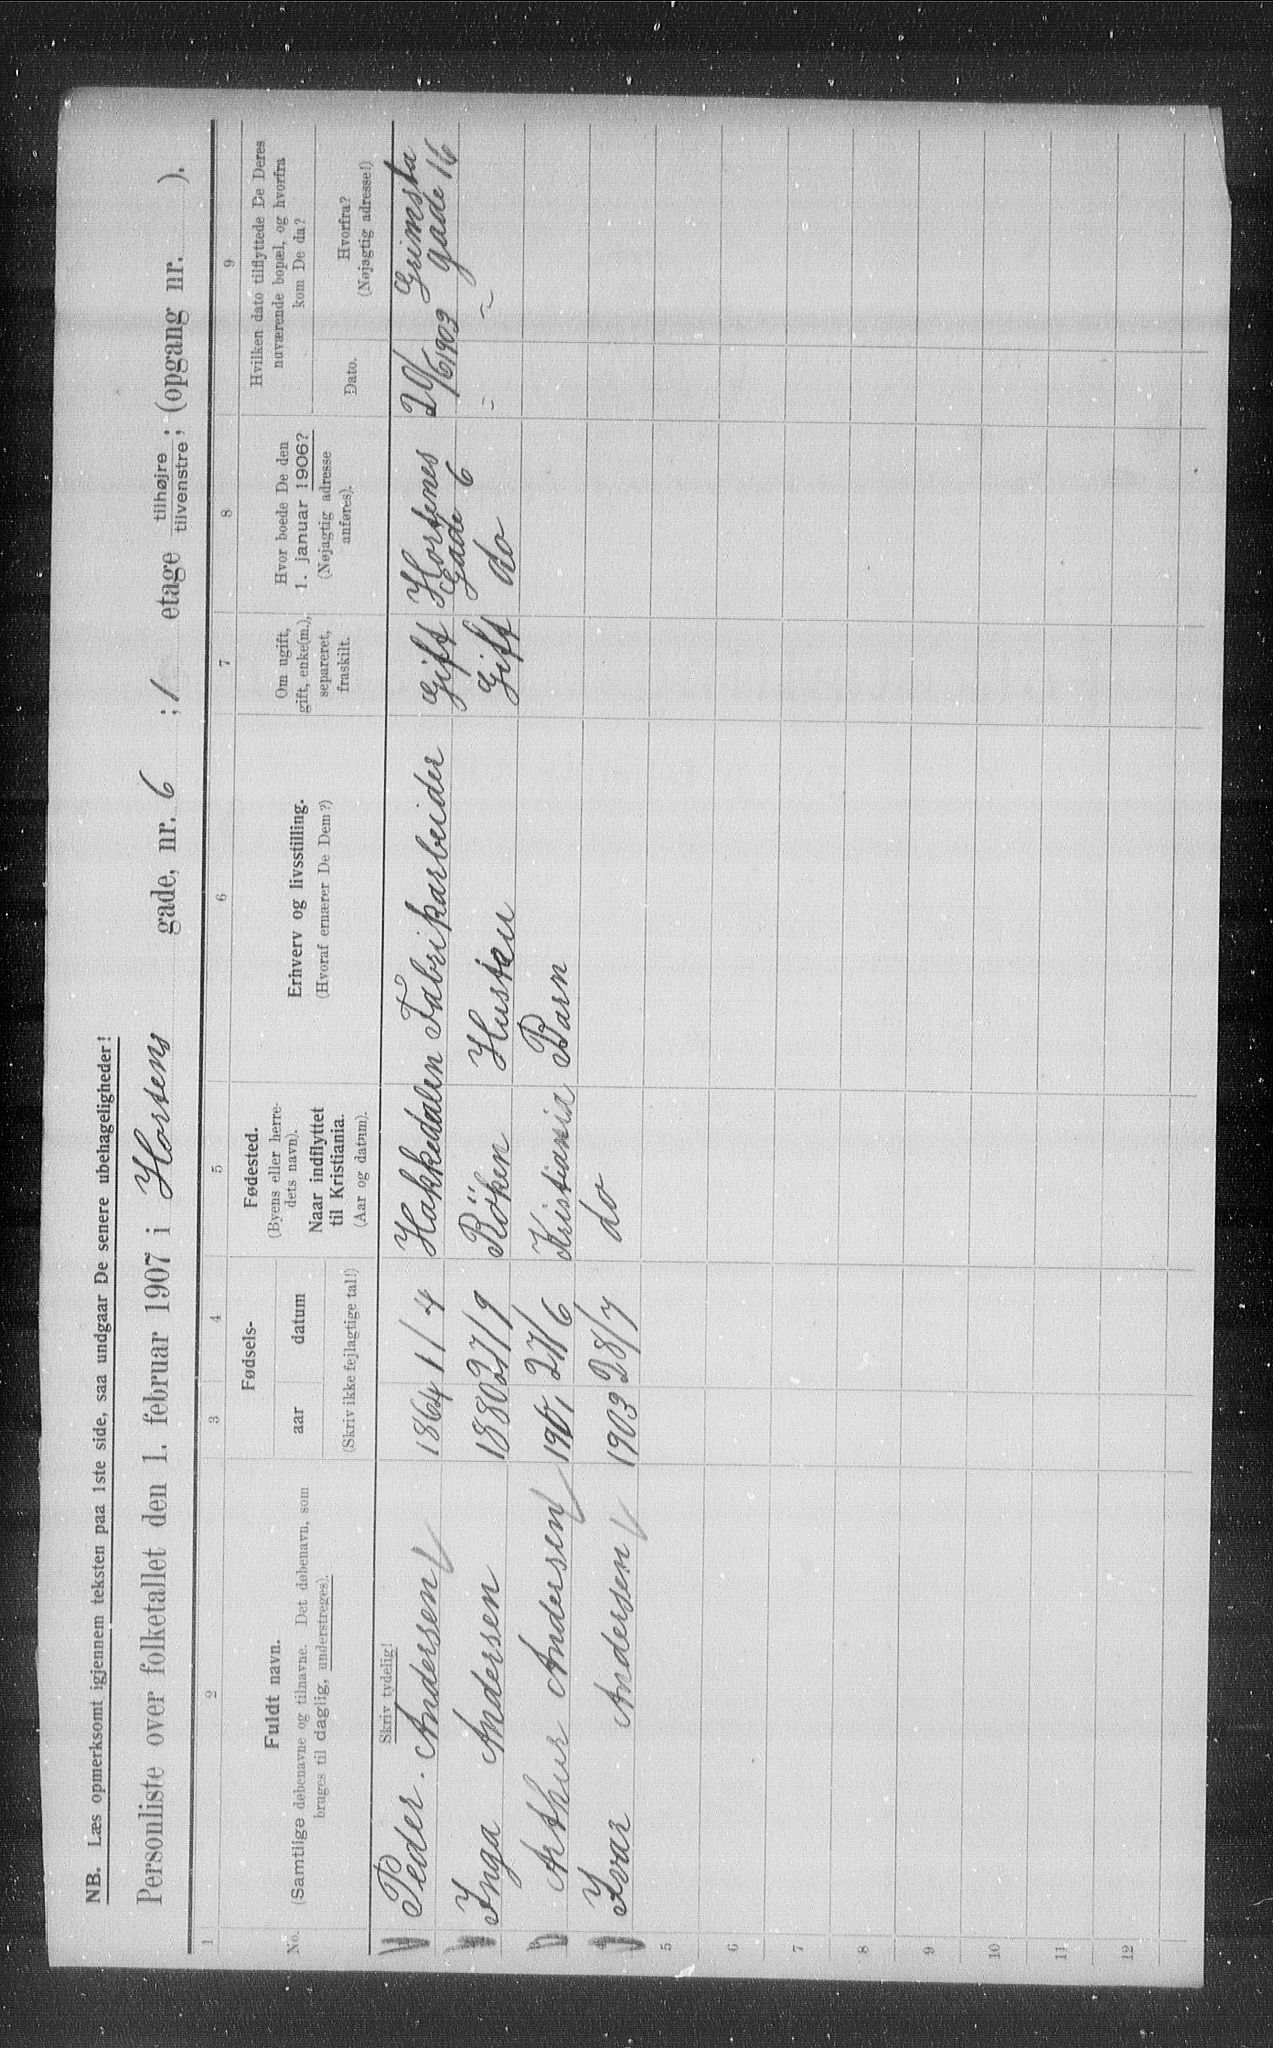 NB. Læs opmerksomt igjennem teksten paa 1ste side, saa undgaar De senere ubehageligheder!
Personliste over folketallet den 1. februar 1907 i Hortens gade, nr. 6 ; 1 etage tilhøjre tilvenstre; (opgang nr. ).
1 2 3 4 5 6 7 8 9
No.
Fuldt navn.
(Samtlige døbenavne og tilnavne. Det døbenavn, som
brages til daglig, understreges).
Fødsels-
aar datum
(Skriv ikke fejlagtige tal!)
Fødested.
(Byens eller herre-
dets navn).
Naar indflyttet
til Kristiania.
(Aar og datum).
Erhverv og livsstilling.
(Hvoraf ernærer De Dem?)
Om ugift,
gift, enke(m.),
separeret,
fraskilt.
Hvor boede De den
1. januar 1906?
(Nøjagtig adresse
anføres).
Hvilken dato tilflyttede De Deres
nuværende bopæl, og hvorfra
kom De da?
Dato.
Hvorfra?
(Nøjagtig adresse!)
Skriv tydelig!
Peder. Andersen 1864 1/4 Hakkedalen Fabrikarbeider Gift Hortenes Gade 6 20/6 1903 Grimsta gade 16
Inga Andersen 1880 27/9 Röken Hustru Gift do " "
Arthur Andersen 1901 27/6 Kristiania Barn
Ivar Andersen 1903 28/7 do
5
6
7
8
9
10
11
12